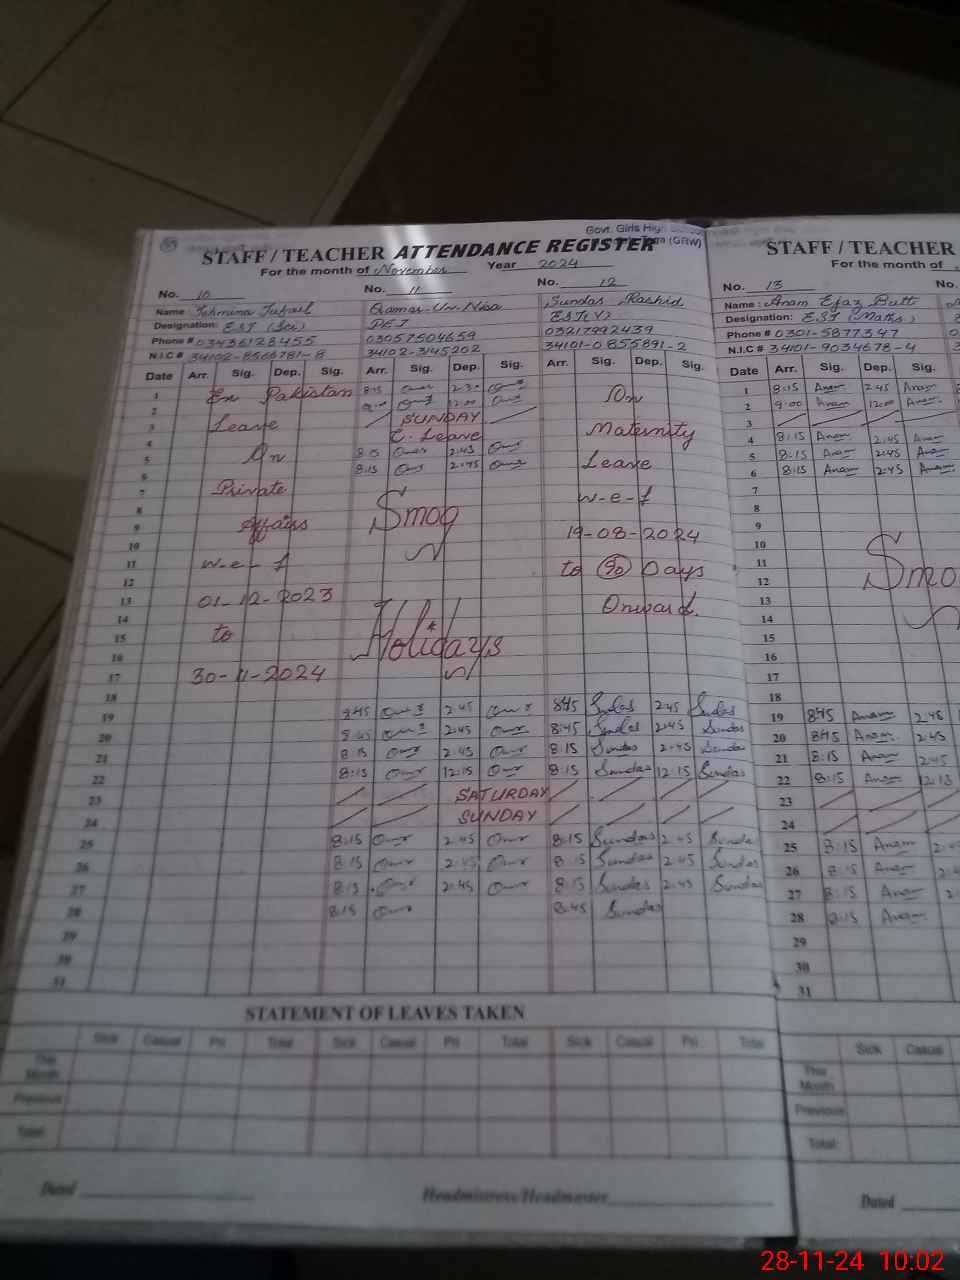 Govt. Girls High School
(GRW)
STAFF / TEACHER ATTENDANCE REGISTER
For the month of November Year 2024
No. 10 No. 11 No. 12
Name: Tehmina Tufail Qamar-Un-Nisa Sundas Rashid
Designation: EST (Sci) PET
Phone # 03436128455 03057504659 03217992439
N.I.C # 34102-8566781-8 34102-3145202 34101-0855891-2
Date Arr. Sig. Dep. Sig. Arr. Sig. Dep. Sig. Arr. Sig. Dep. Sig.
1 Ex Pakistan 8:15 2:30 On
2 12:00
3 Leave SUNDAY Maternity
4 C. Leave
5 On 2:45 Leave
6 8:15 2:45
7 Private W-e-f
8 Smog
9 Affairs 19-08-2024
10
11 W-e-f to 90 Days
12
13 01-12-2023 Onward.
14
15 to Holidays
16
17 30-11-2024
18
19 8:45 2:45 8:45 Sundas 2:45 Sundas
20 8:45 2:45 8:45 Sundas 2:45 Sundas
21 8:15 2:45 8:15 Sundas 2:45 Sundas
22 8:15 12:15 8:15 Sundas 12:15 Sundas
23 SATURDAY
24 SUNDAY
25 8:15 2:45 8:15 Sundas 2:45 Sundas
26 8:15 2:45 8:15 Sundas 2:45 Sundas
27 8:15 2:45 8:15 Sundas 2:45 Sundas
28 8:15 8:45 Sundas
29
30
31
STATEMENT OF LEAVES TAKEN
Sick Casual Pri Total Sick Casual Pri Total Sick Casual Pri Total
This Month
Previous
Total
Dated Headmistress/Headmaster
STAFF / TEACHER
For the month of
No. 13 No.
Name: Anam Ejaz Butt
Designation: EST (Maths)
Phone # 0301-5877347
N.I.C # 34101-9034678-4
Date Arr. Sig. Dep. Sig.
1 8:15 Anam 2:45 Anam
2 9:00 Anam 12:00 Anam
3
4 8:15 Anam 2:45 Anam
5 8:15 Anam 2:45 Anam
6 8:15 Anam 2:45 Anam
7
8
9
10
11 Smo
12
13
14
15
16
17
18
19 8:45 Anam 2:45
20 8:45 Anam 2:45
21 8:15 Anam 2:45
22 8:15 Anam 12:15
23
24
25 8:15 Anam
26 8:15 Anam
27 8:15 Anam
28 8:15 Anam
29
30
31
Sick Casual
This Month
Previous
Total
Dated
28-11-24 10:02